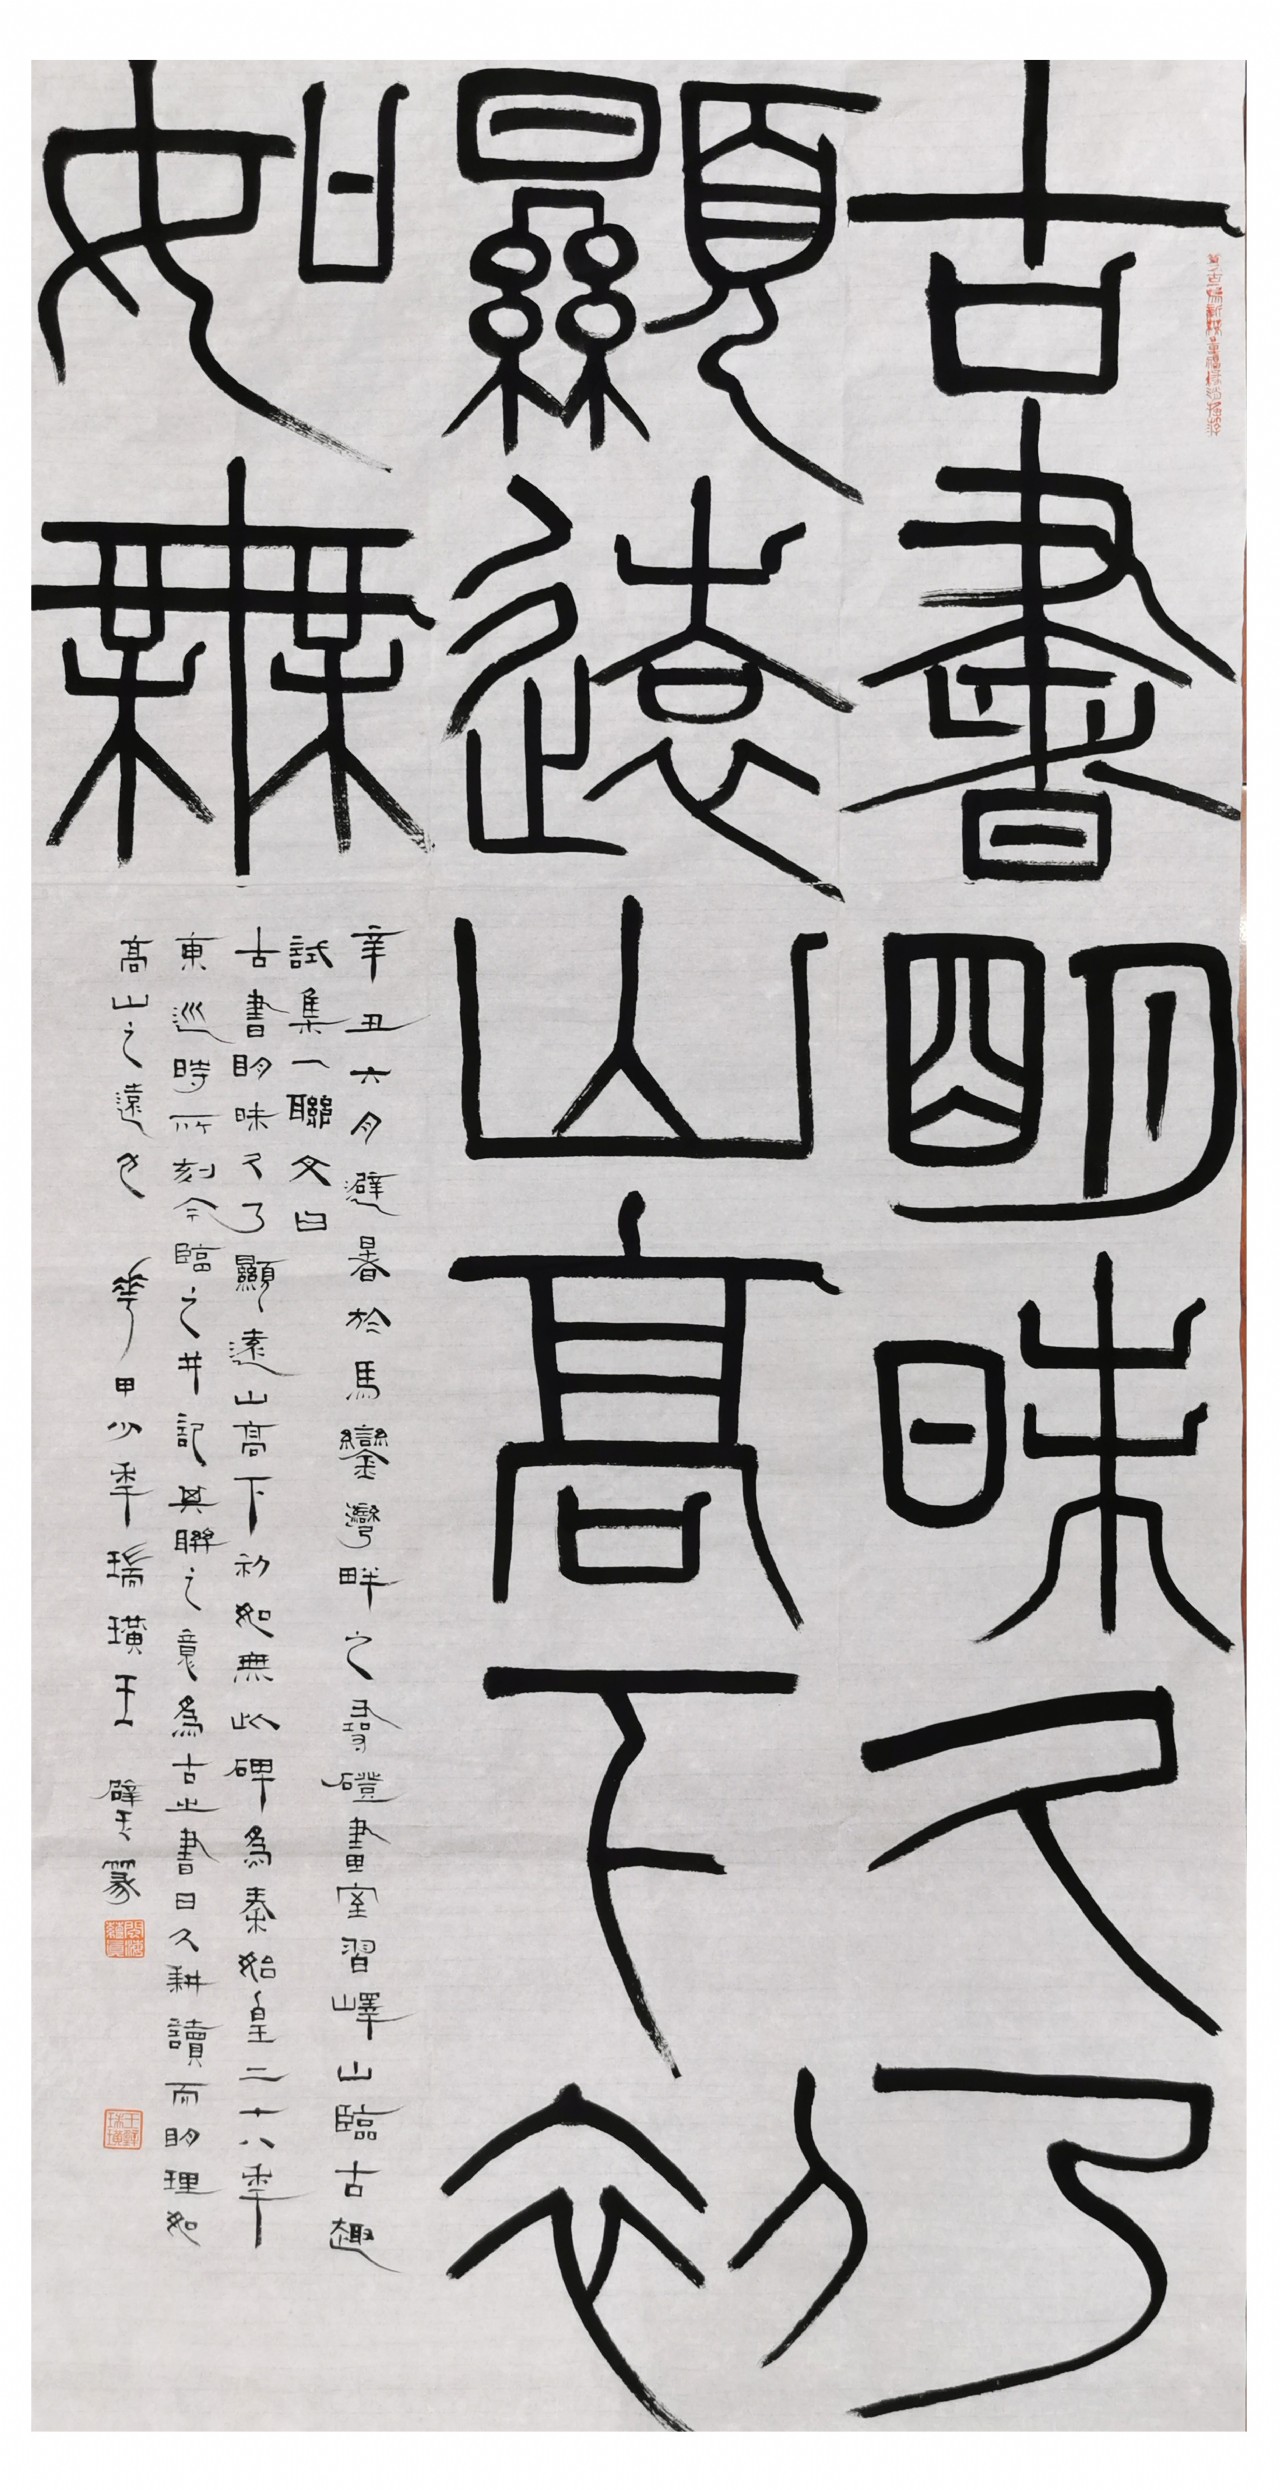 古書明昧久乃
顯遠山高下初
如無
辛丑六月避暑於馬鑾灣畔之尋磴畫室習嶧山臨古趣
試集一聯文曰
古書明昧久乃顯遠山高下初如無此碑為秦始皇二十八年
東巡時所刻今臨之并記其聯之意為古之書日久耕讀而明理如
高山之遠也 華甲少年瑞璜王 璧 篆